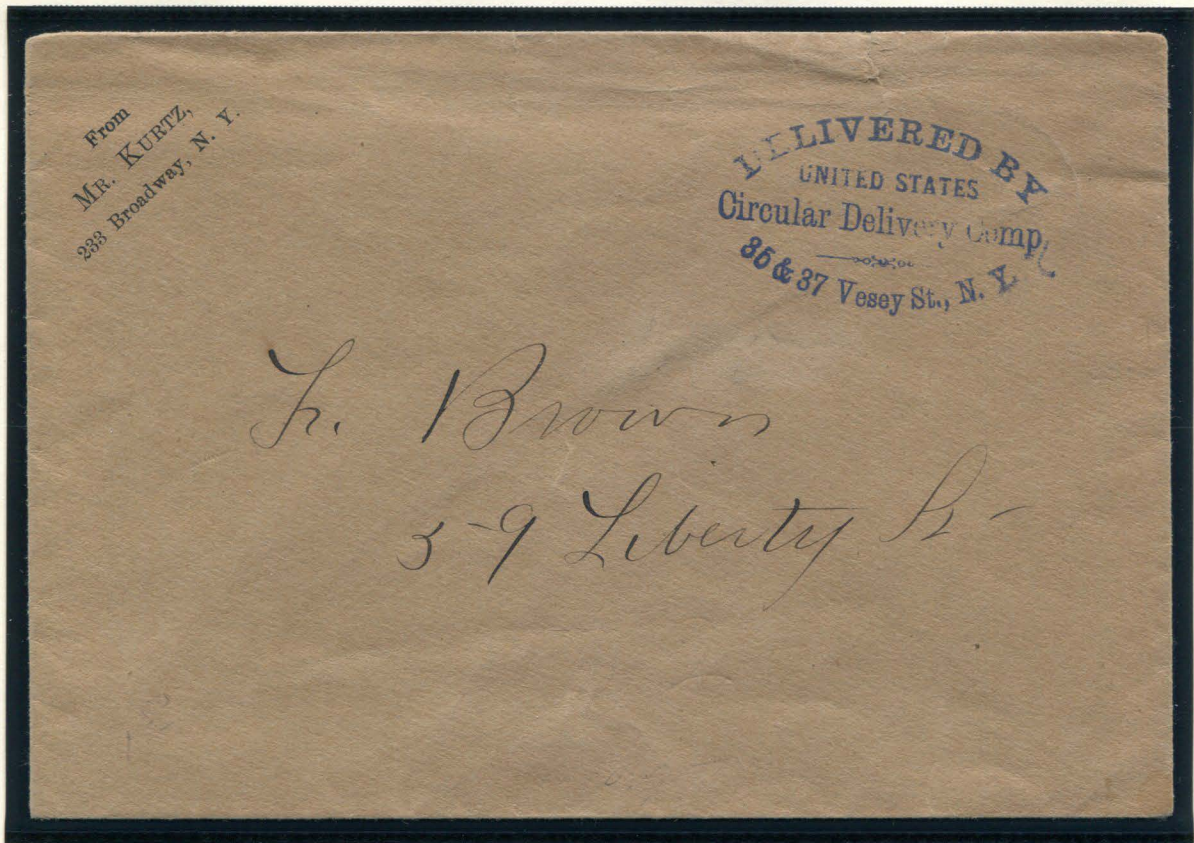 From
MR. KURTZ,
233 Broadway, N. Y.
DELIVERED BY
UNITED STATES
Circular Delivery Comp.
35 & 37 Vesey St., N. Y.
Brown
59 Liberty St